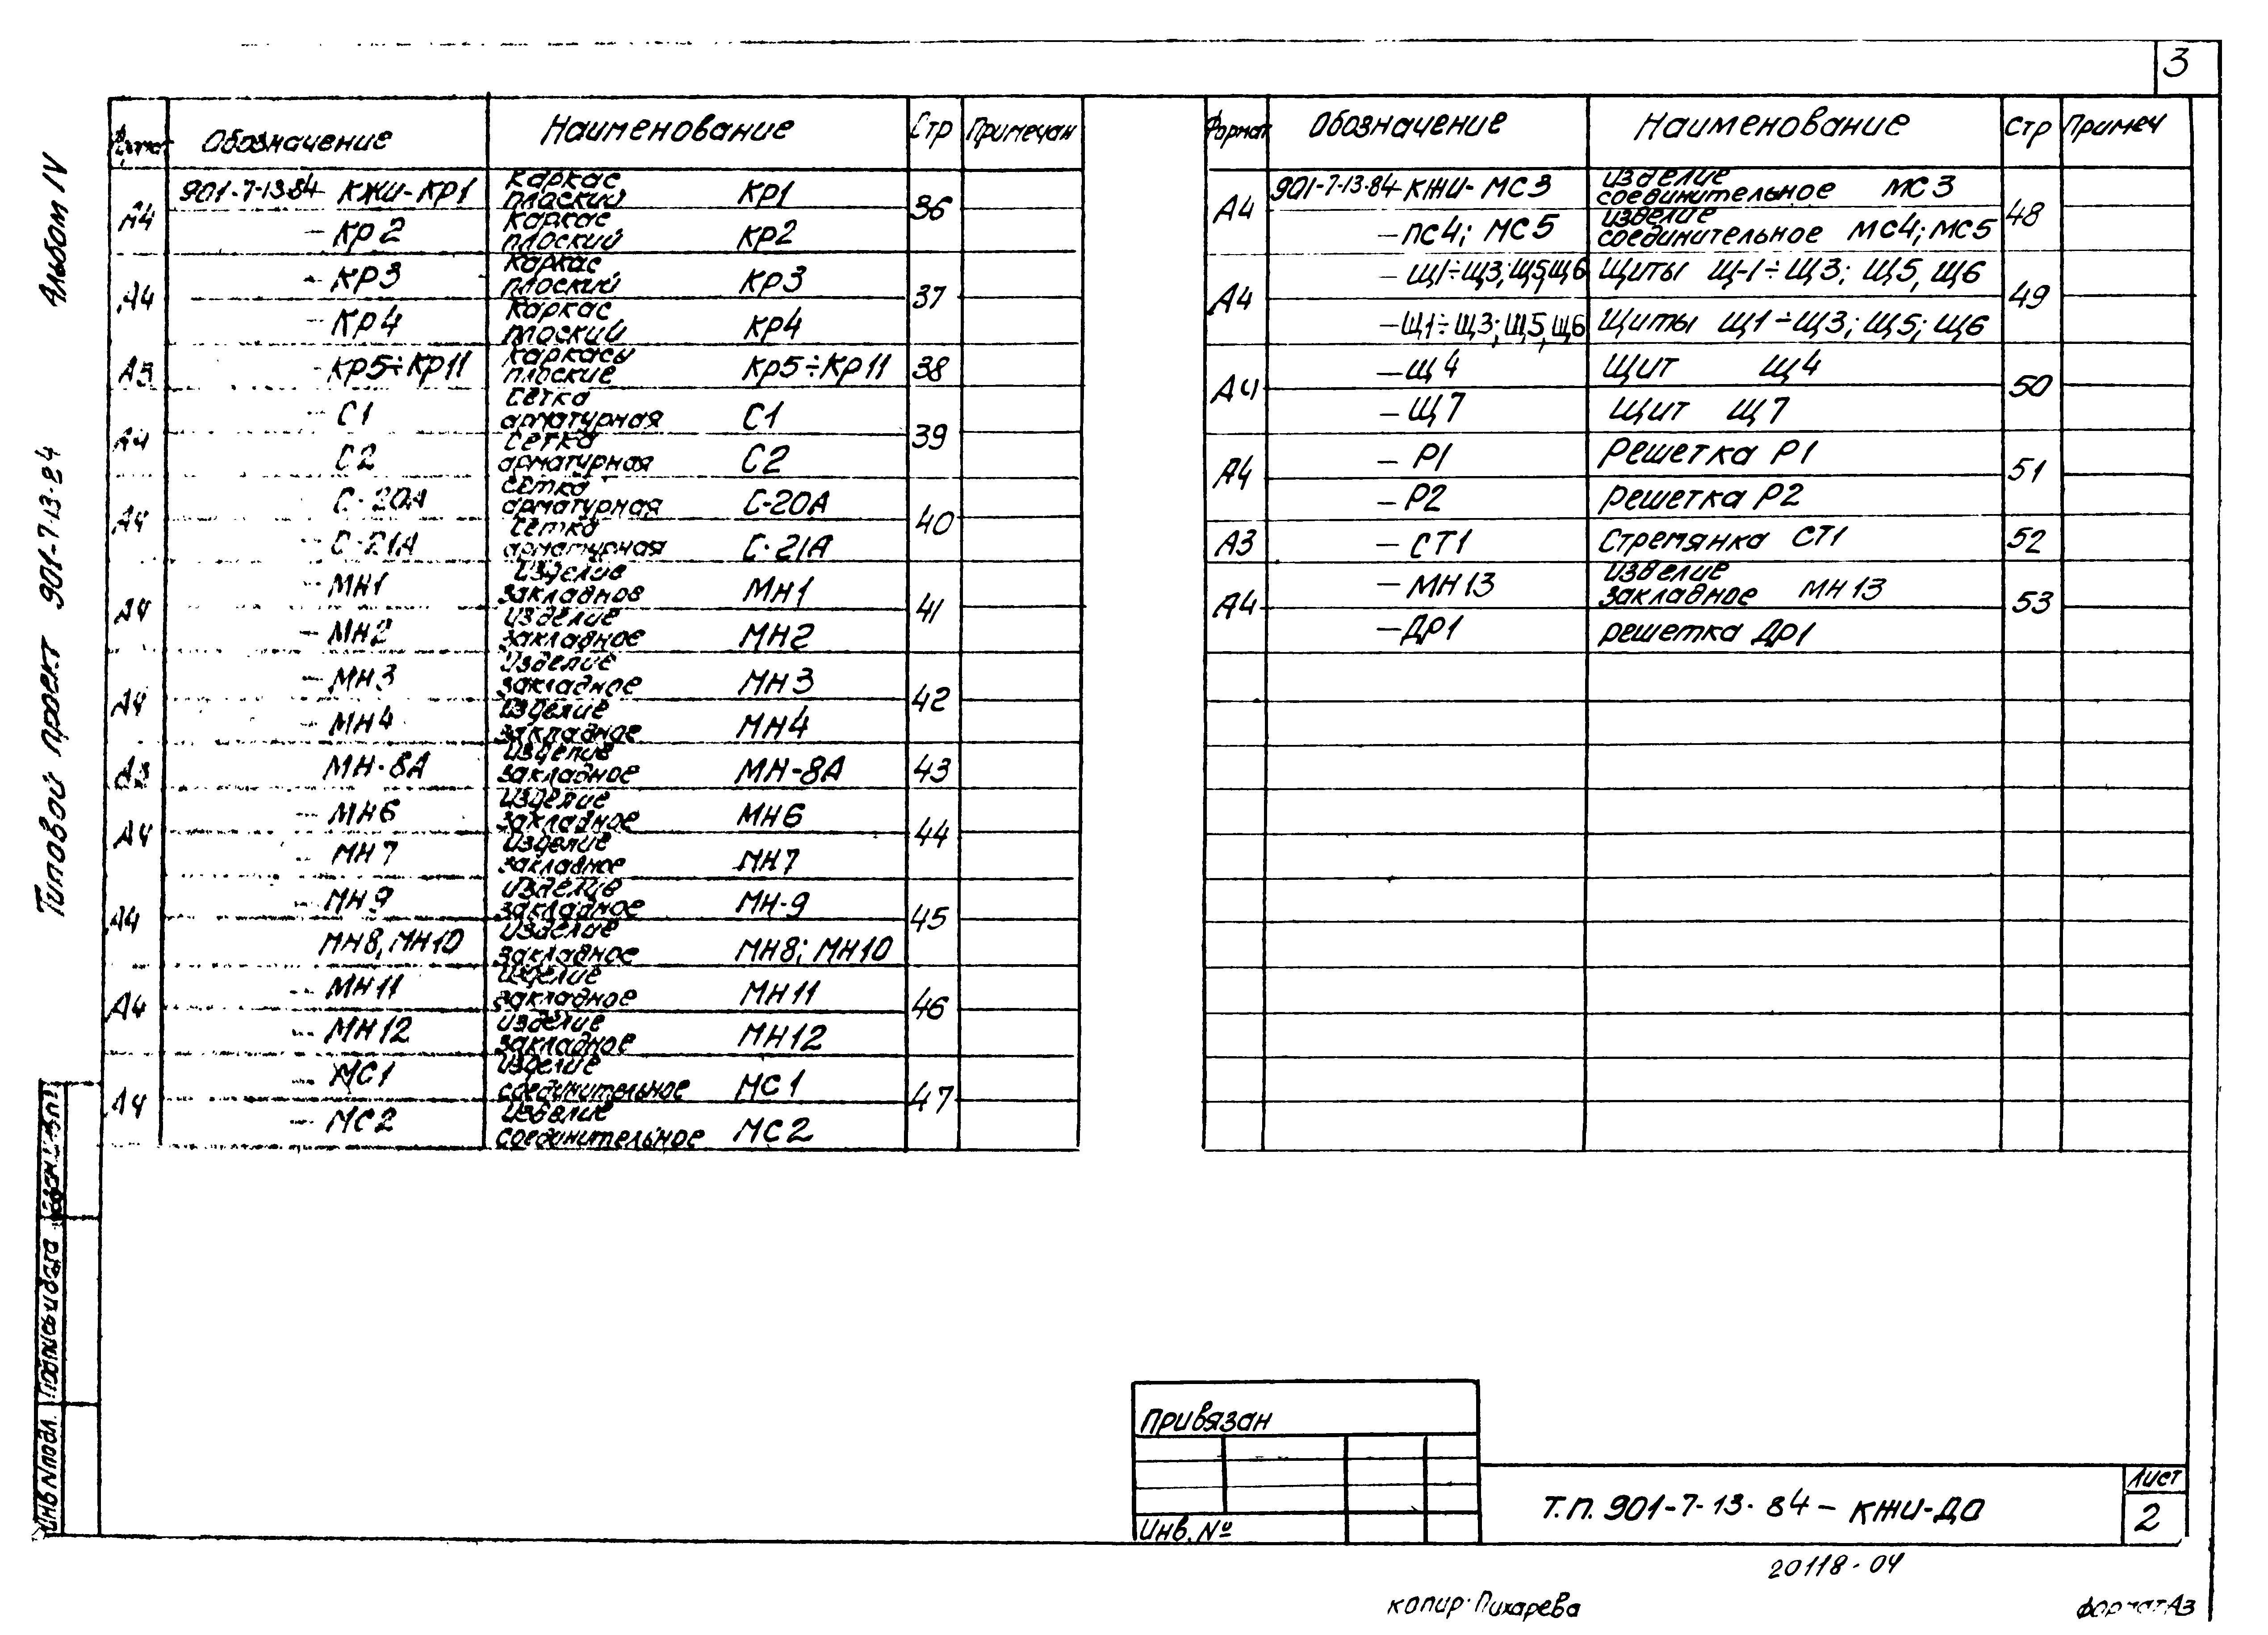 3
Альбом IV
Типовой проект 901-7-13-84
Формат Обозначение Наименование Стр Примечан
А4 901-7-13-84 КЖИ-КР1 Каркас плоский КР1 36
- КР2 Каркас плоский КР2
А4 - КР3 Каркас плоский КР3 37
- КР4 Каркас плоский КР4
А3 - КР5÷КР11 Каркасы плоские КР5÷КР11 38
А4 - С1 Сетка арматурная С1 39
- С2 Сетка арматурная С2
А4 - С-20А Сетка арматурная С-20А 40
- С-21А Сетка арматурная С-21А
А4 - МН1 Изделие закладное МН1 41
- МН2 Изделие закладное МН2
А4 - МН3 Изделие закладное МН3 42
- МН4 Изделие закладное МН4
А3 МН-8А Изделие закладное МН-8А 43
А4 - МН6 Изделие закладное МН6 44
- МН7 Изделие закладное МН7
А4 - МН9 Изделие закладное МН-9 45
МН8, МН10 Изделие закладное МН8; МН10
А4 - МН11 Изделие закладное МН11 46
- МН12 Изделие закладное МН12
А4 - МС1 Изделие соединительное МС1 47
- МС2 Изделие соединительное МС2
Формат Обозначение Наименование Стр Примеч
А4 901-7-13-84-КЖИ-МС3 Изделие соединительное МС3 48
-ПС4; МС5 Изделие соединительное МС4; МС5
А4 - Щ1÷Щ3; Щ5, Щ6 Щиты Щ-1÷Щ3; Щ5, Щ6 49
-Щ1÷Щ3; Щ5, Щ6 Щиты Щ1÷Щ3; Щ5; Щ6
А4 -Щ4 Щит Щ4 50
-Щ7 Щит Щ7
А4 - Р1 Решетка Р1 51
- Р2 Решетка Р2
А3 - СТ1 Стремянка СТ1 52
А4 - МН13 Изделие закладное МН13 53
-ДР1 решетка ДР1
Подпись и дата
Инв N подл.
Привязан
Инв. №
Т.П. 901-7-13-84-КЖИ-ДО
Лист
2
20118-04
копир. Пихарева
формат А3